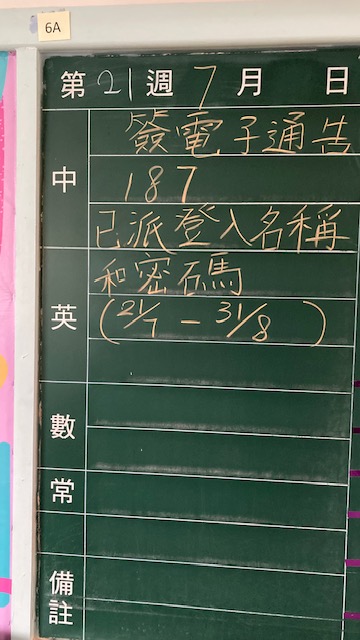 6A
第21週7月 日
簽電子通告
中 187
已派登入名稱
和密碼
英 (21/7 - 31/8 )
數
常
備註